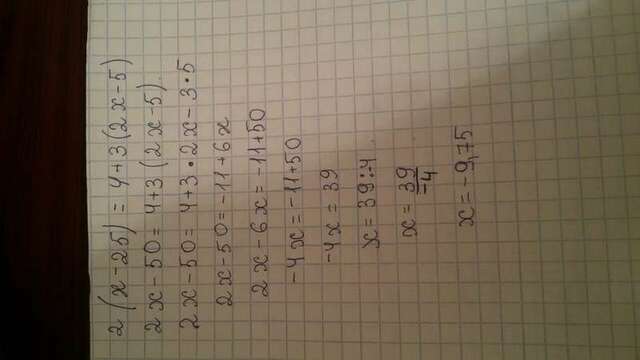 2 (x-25) = 4+3(2x-5)
2x-50= 4+3 (2x-5)
2x-50= 4+3•2x-3•5
2x-50=-11+6x
2x-6x=-11+50
-4x=-11+50
-4x = 39
x= 39:-4
x= 39/-4
x=-9,75